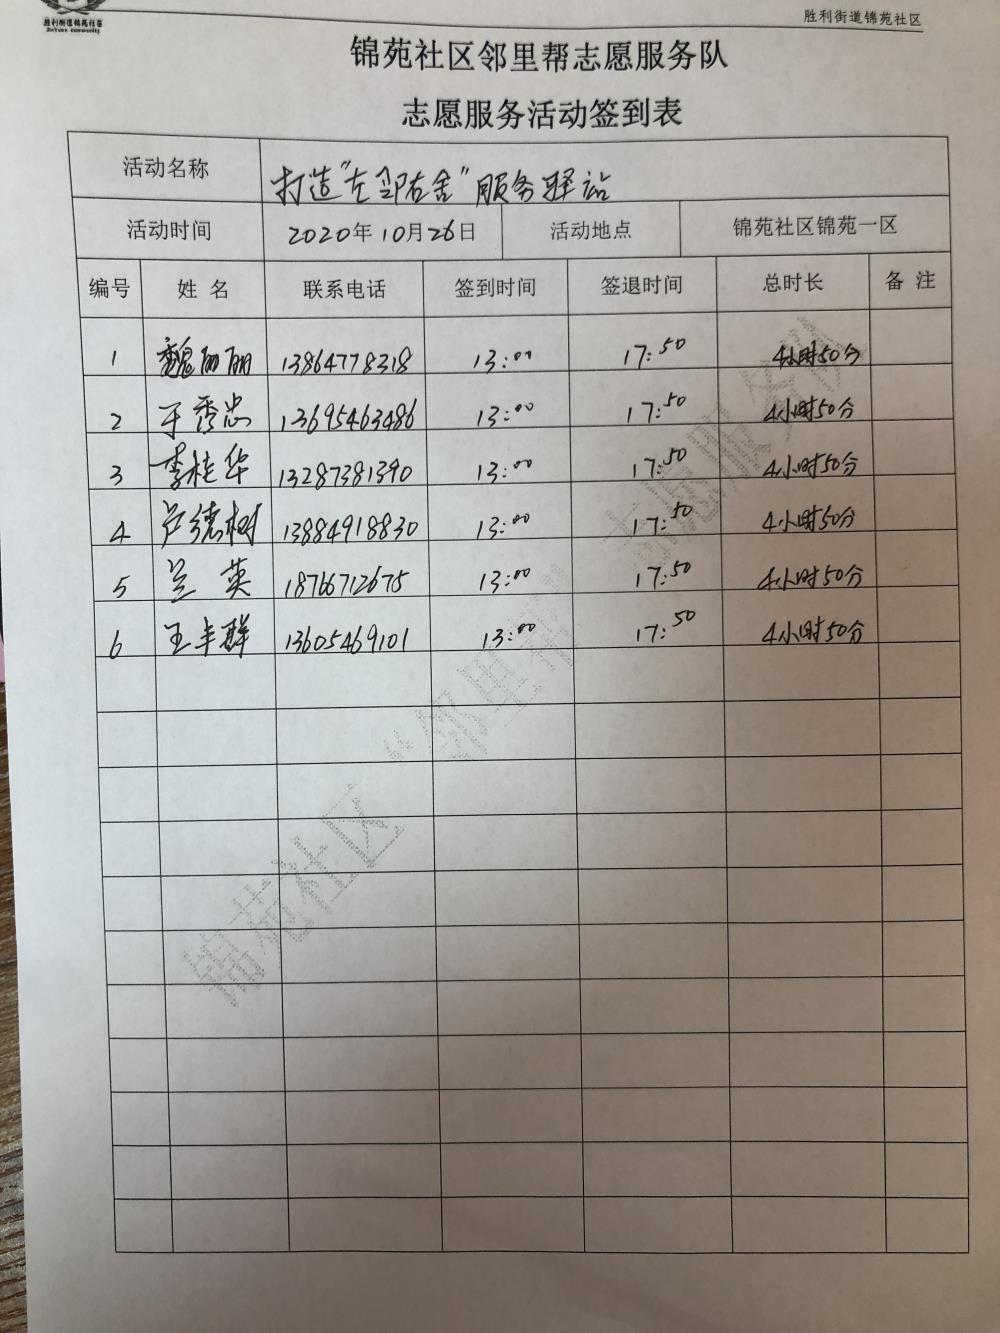 胜利街道锦苑社区
胜利街道锦苑社区
JinYuan community
锦苑社区邻里帮志愿服务队
志愿服务活动签到表
活动名称 打造"左邻右舍"服务驿站
活动时间 2020年10月26日 活动地点 锦苑社区锦苑一区
编号 姓 名 联系电话 签到时间 签退时间 总时长 备 注
1 魏丽丽 13864778318 13:00 17:50 4小时50分
2 于秀忠 13695463486 13:00 17:50 4小时50分
3 李桂华 13287381390 13:00 17:50 4小时50分
4 芦德树 13884918830 13:00 17:50 4小时50分
5 兰英 18766712675 13:00 17:50 4小时50分
6 王丰群 13605469101 13:00 17:50 4小时50分
锦苑社区"邻里帮"志愿服务队